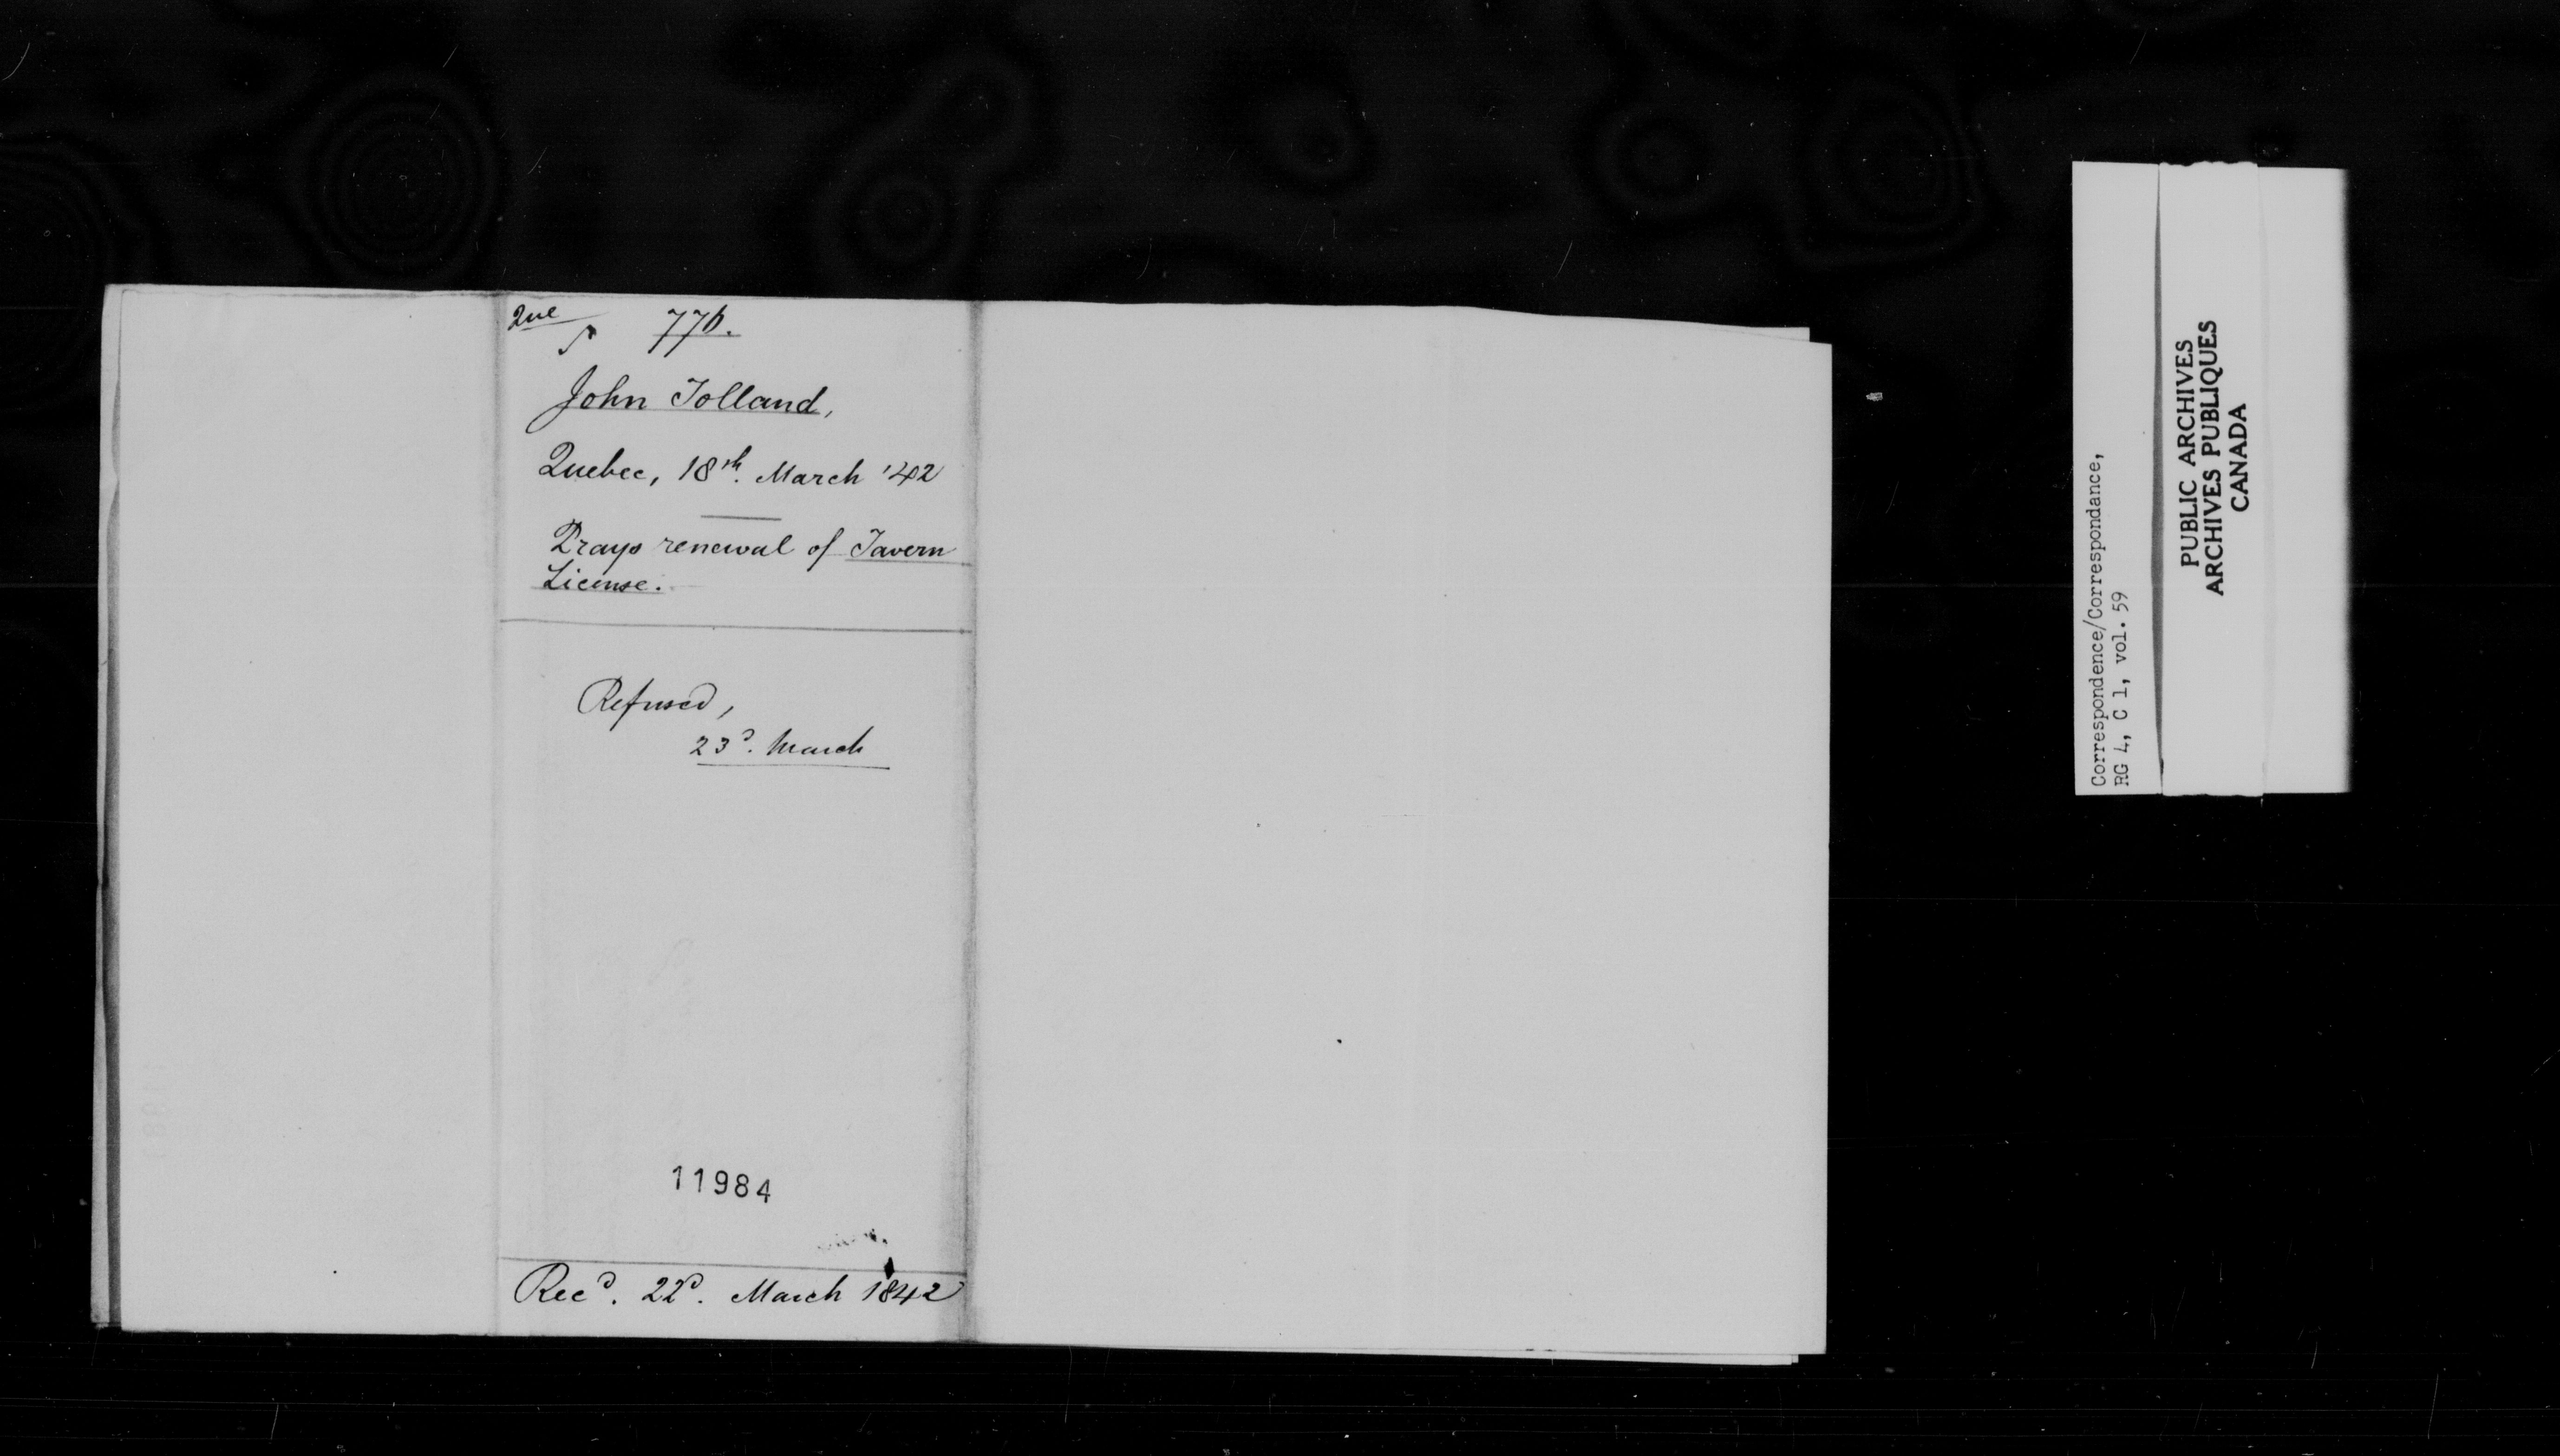 Que
776.
John Tolland,
Quebec, 18th. March '42
Prays renewal of Tavern
License.
Refused,
23d. March
11984
Recd. 22d. March 1842
Correspondence/Correspondance,
RG 4, C 1, vol. 59
PUBLIC ARCHIVES
ARCHIVES PUBLIQUES
CANADA